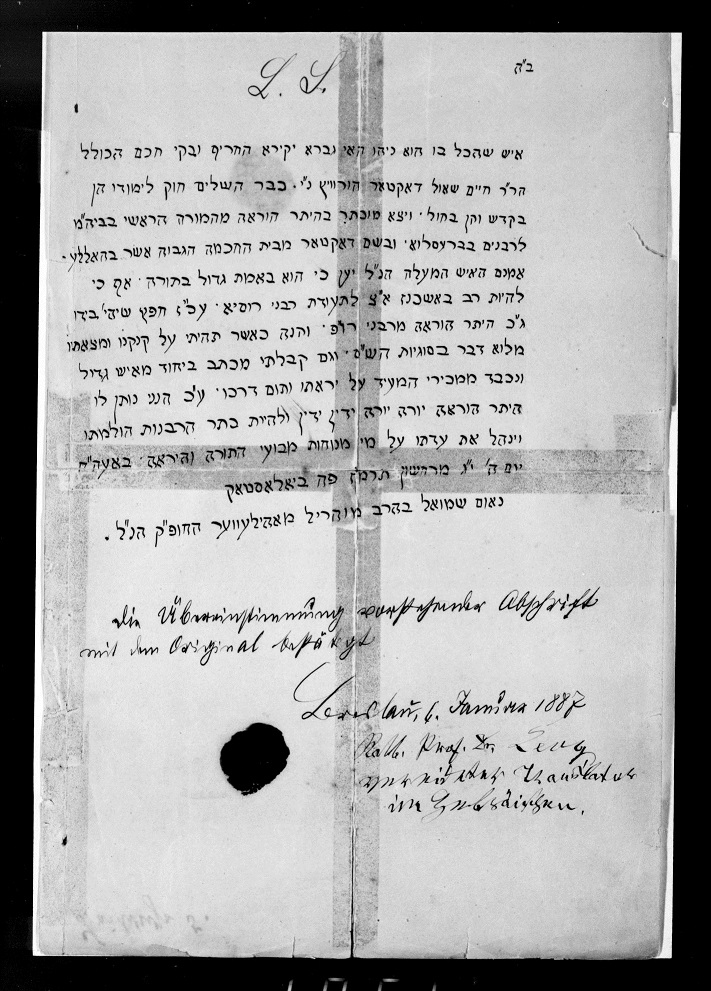 ב"ה
L. S.
איש שהכל בו הוא ניהו האי גברא יקירא החריף ובקי חכם הכולל
הר"ר חיים שאול דאקטאר הורוויץ נ"י. כבר השלים חוק לימודו הן
בקדש והן בחול. ויצא מוכתר בהיתר הוראה מהמורה הראשי בביה"מ
לרבנים בברעסלוא. ובשם דאקטאר מבית החכמה הגבוה אשר בהאללע.
אמנם האיש המעלה הנ"ל יען כי הוא באמת גדול בתורה. אף כי
להיות רב באשכנז א"צ לתעודת רבני רוסיא. עכ"ז חפץ שיהי' בידו
ג"כ היתר הוראה מרבני רו"פ. והנה כאשר תהיתי על קנקנו ומצאתו
מלוא דבר בסוגיות הש"ס. וגם קבלתי מכתב ביחוד מאיש גדול
ונכבד ממכירי המעיד על יראתו ותום דרכו. ע"כ הנני נותן לו
היתר הוראה יורה יורה ידין ידין ולהיות כתר הרבנות הולמתו
וינהל את עדתו על מי מנוחות מבועי התורה והיראה. באעה"ח
יום ה' י"ג מרחשון תרמ"ז פה ביאלאסטאק
נאום שמואל בהרב מוהריל מאהילעווער החופ"ק הנ"ל.
Die Übereinstimmung vorstehender Abschrift
mit dem Original bestätigt
Breslau, 6. Januar 1887
Rabb. Prof. Dr.
vereideter Translator
im Hebräischen.